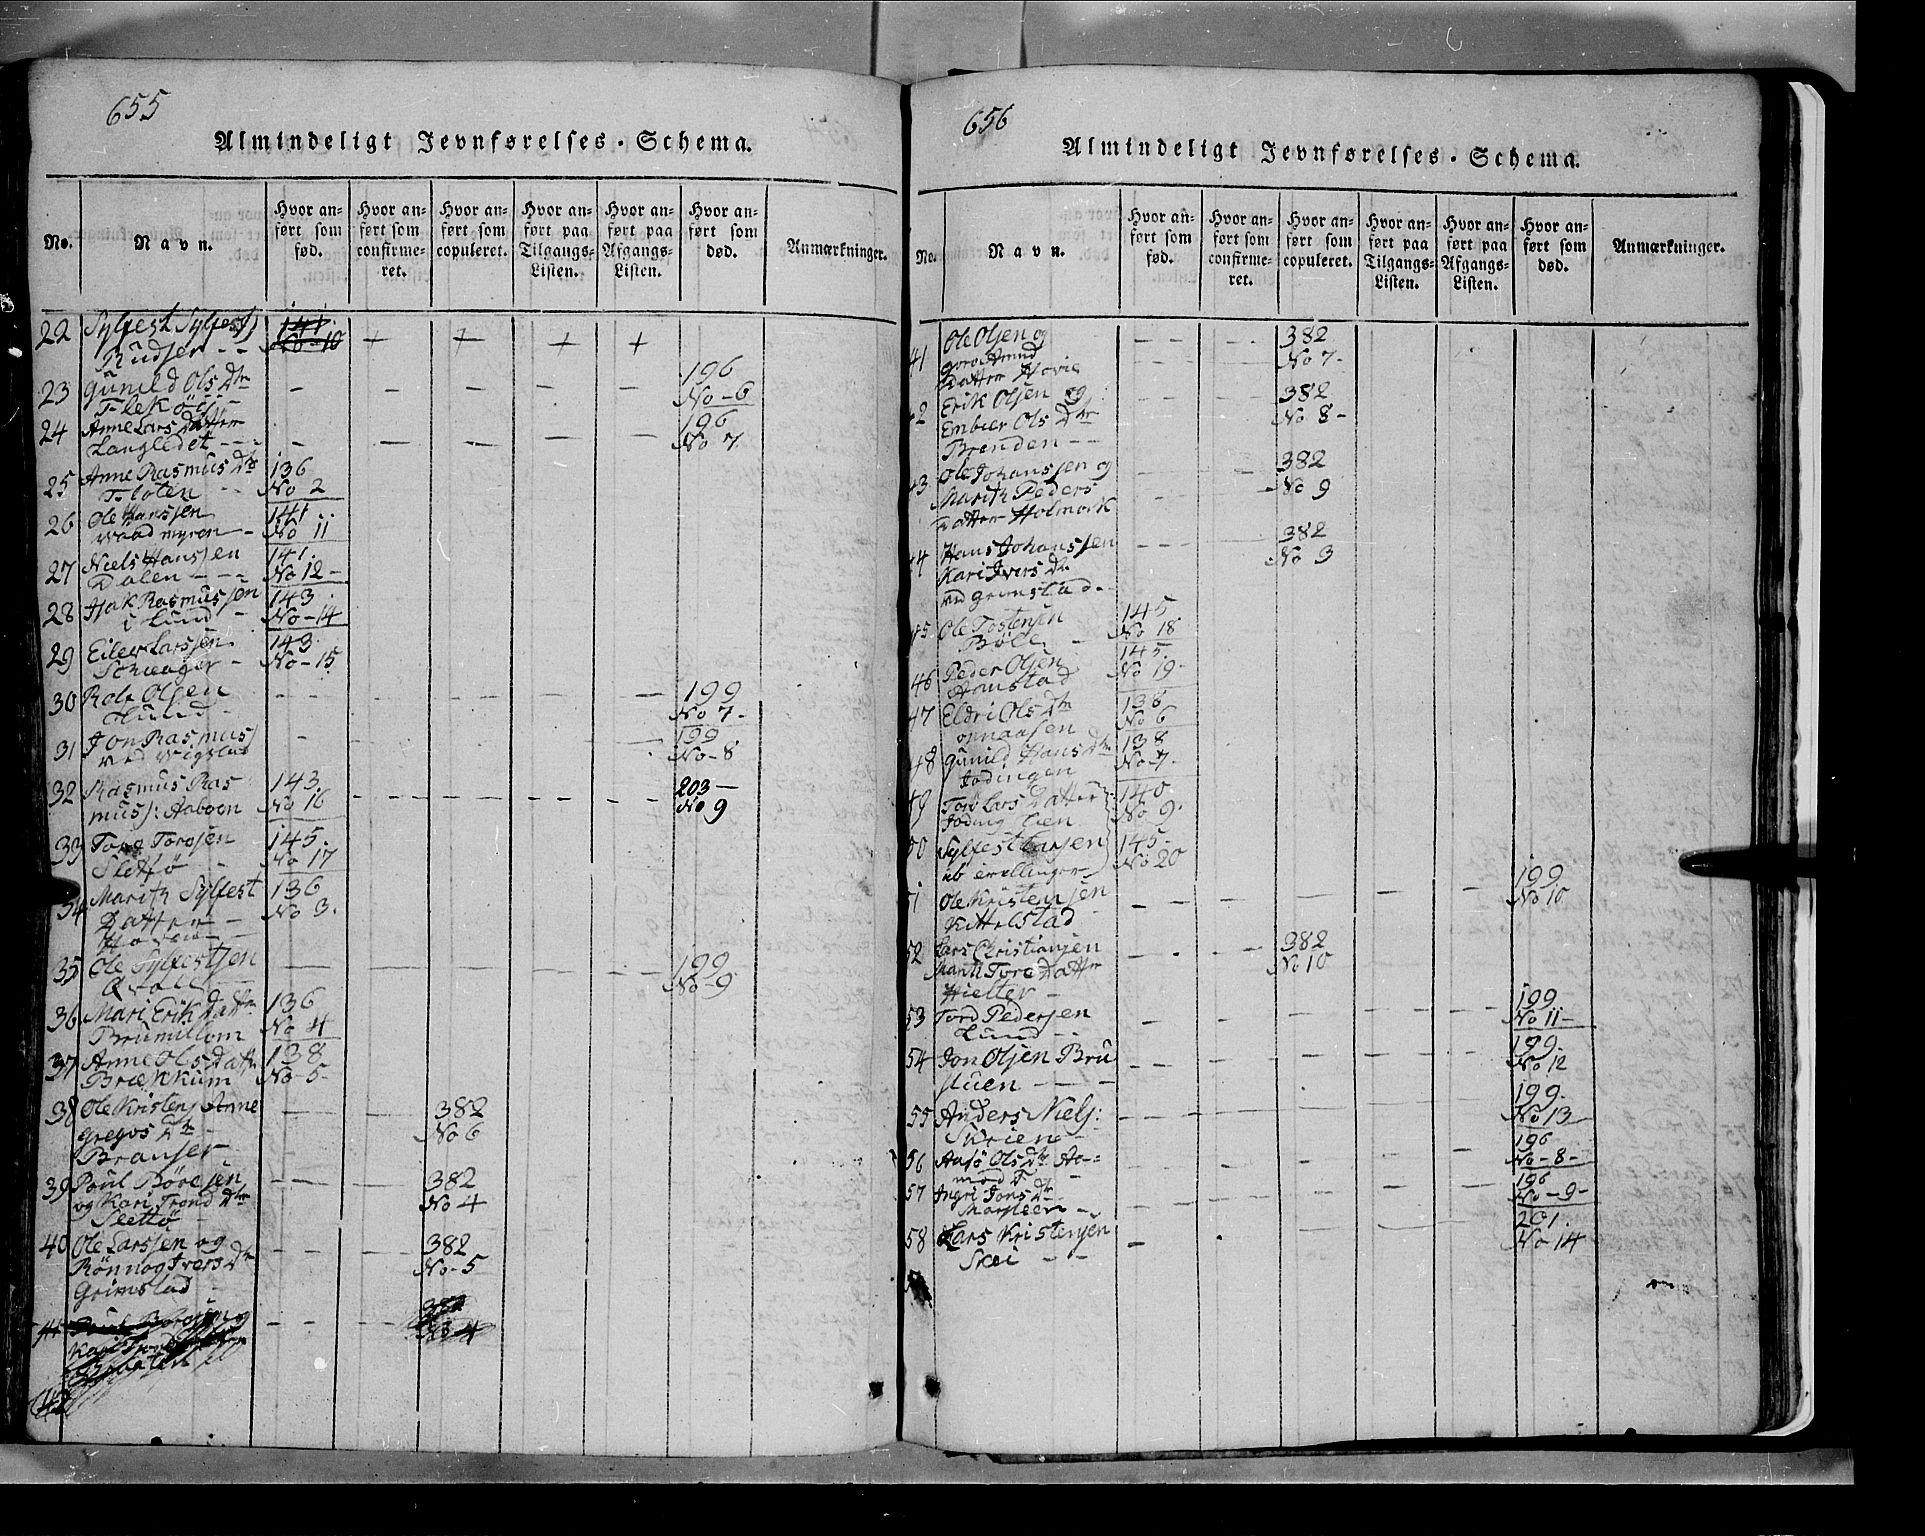 655
Almindeligt Jevnførelses-Schema.
No.
Navn.
Hvor anført som fød.
Hvor anført som confirmeret.
Hvor anført som copuleret.
Hvor anført paa Tilgangs-Listen.
Hvor anført paa Afgangs-Listen.
Hvor anført som død.
Anmærkninger.
22 Sylfest Sylfest 141
Rudser - - No-10 + + + +
23 Gunild Ols Dtr - - - - - 196
No-6
24 Anne Lars Datter 196
Langledet - - - - - - - No 7
25 Anne Rasmus Dtr 136
Floten - - No 2
26 Ole Hanssen 141
- No 11
27 Niels Hanssen 141.
Dalen - - - No 12-
28 Isak Rasmussen 143
i Lund - No-14
29 Eiler Larssen 143.
Schieager - No-15
30 Rolf Olsen - - - - - 199
Lund - No 7-
31 Jon Rasmus - - - 199
ved Vigstad No-8
32 Rasmus Ras 143. 203-
mus: Aaboen No 16 - - - - - No 9
33 Tore Toresen 145.
Sletjø - No 17
34 Marith Sylfest 136
Datter - No 3.
35 Ole Sylfestsen - - - - - 199
No-9
36 Mari Erik Datr 136
Brumillom No 4
37 Anne Ols Datr 138
Brækkum No-5-
38 Ole Kristens Anne - - 382
Gregos Dtr - No 6
Branser -
39 Poul Böresen - - 382
og Kari Trond Dtr No 4
Slettö -
40 Ole Larssen og - - - 382
Rönnog Ivers Dtr No-5
Grimstad -
- - - No 4
42
656
Almindeligt Jevnførelses-Schema.
No.
Navn.
Hvor anført som fød.
Hvor anført som confirmeret.
Hvor anført som copuleret.
Hvor anført paa Tilgangs-Listen.
Hvor anført paa Afgangs-Listen.
Hvor anført som død.
Anmærkninger.
41 Ole Olsen og - - - - 382
No 7-
Datter Hovie
2 Erik Olsen og 382
Embier Ols Dtr No 8-
Brenden - -
3 Ole Johanssen og 382
Marith Peders No 9
Datter Holmork
4 Hans Johanssen 382
Kari Ivers Dtr No 3
ved Grimstad.
45 Ole Tostensen 145
Böle - No 18
46 Peder Olsen 145.
Harnstad No 19-
47 Eldri Ols Dtr 138
No 6
48 Gunild Hans Dtr 138
Jodingen No-7-
49 Tore Lars Datter 140
Joding lien No 9.
50 Sylfest Larsen 145-
No 20
51 Ole Kristensen - - - - - 199
Kittelstad - No 10
52 Lars Christiansen - - - 382
Marit Tore Datter No 10
Hielter -
53 Tord Pedersen - - - - - 199
Lund - - No 11-
54 Jon Olsen Bru - - - - - 199.
stuen - - - No 12
55 Anders Niels: - - - - - 199.
Skriene - No 13
56 Ols Dtr 196
No-8-
57 Ingri Jons Dtr - - - - - 196
- No-9-
58 Lars Kristensen 201.
Skei - - No 14